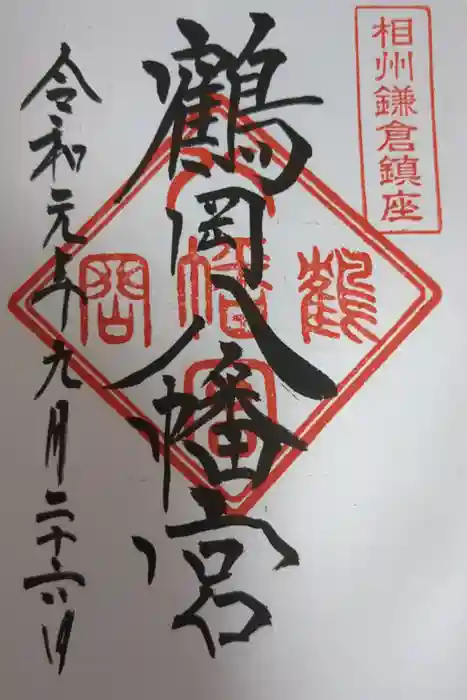 相州鎌倉鎮座
鶴岡八幡宮
鶴
八幡宮
岡
令和元年九月二十六日